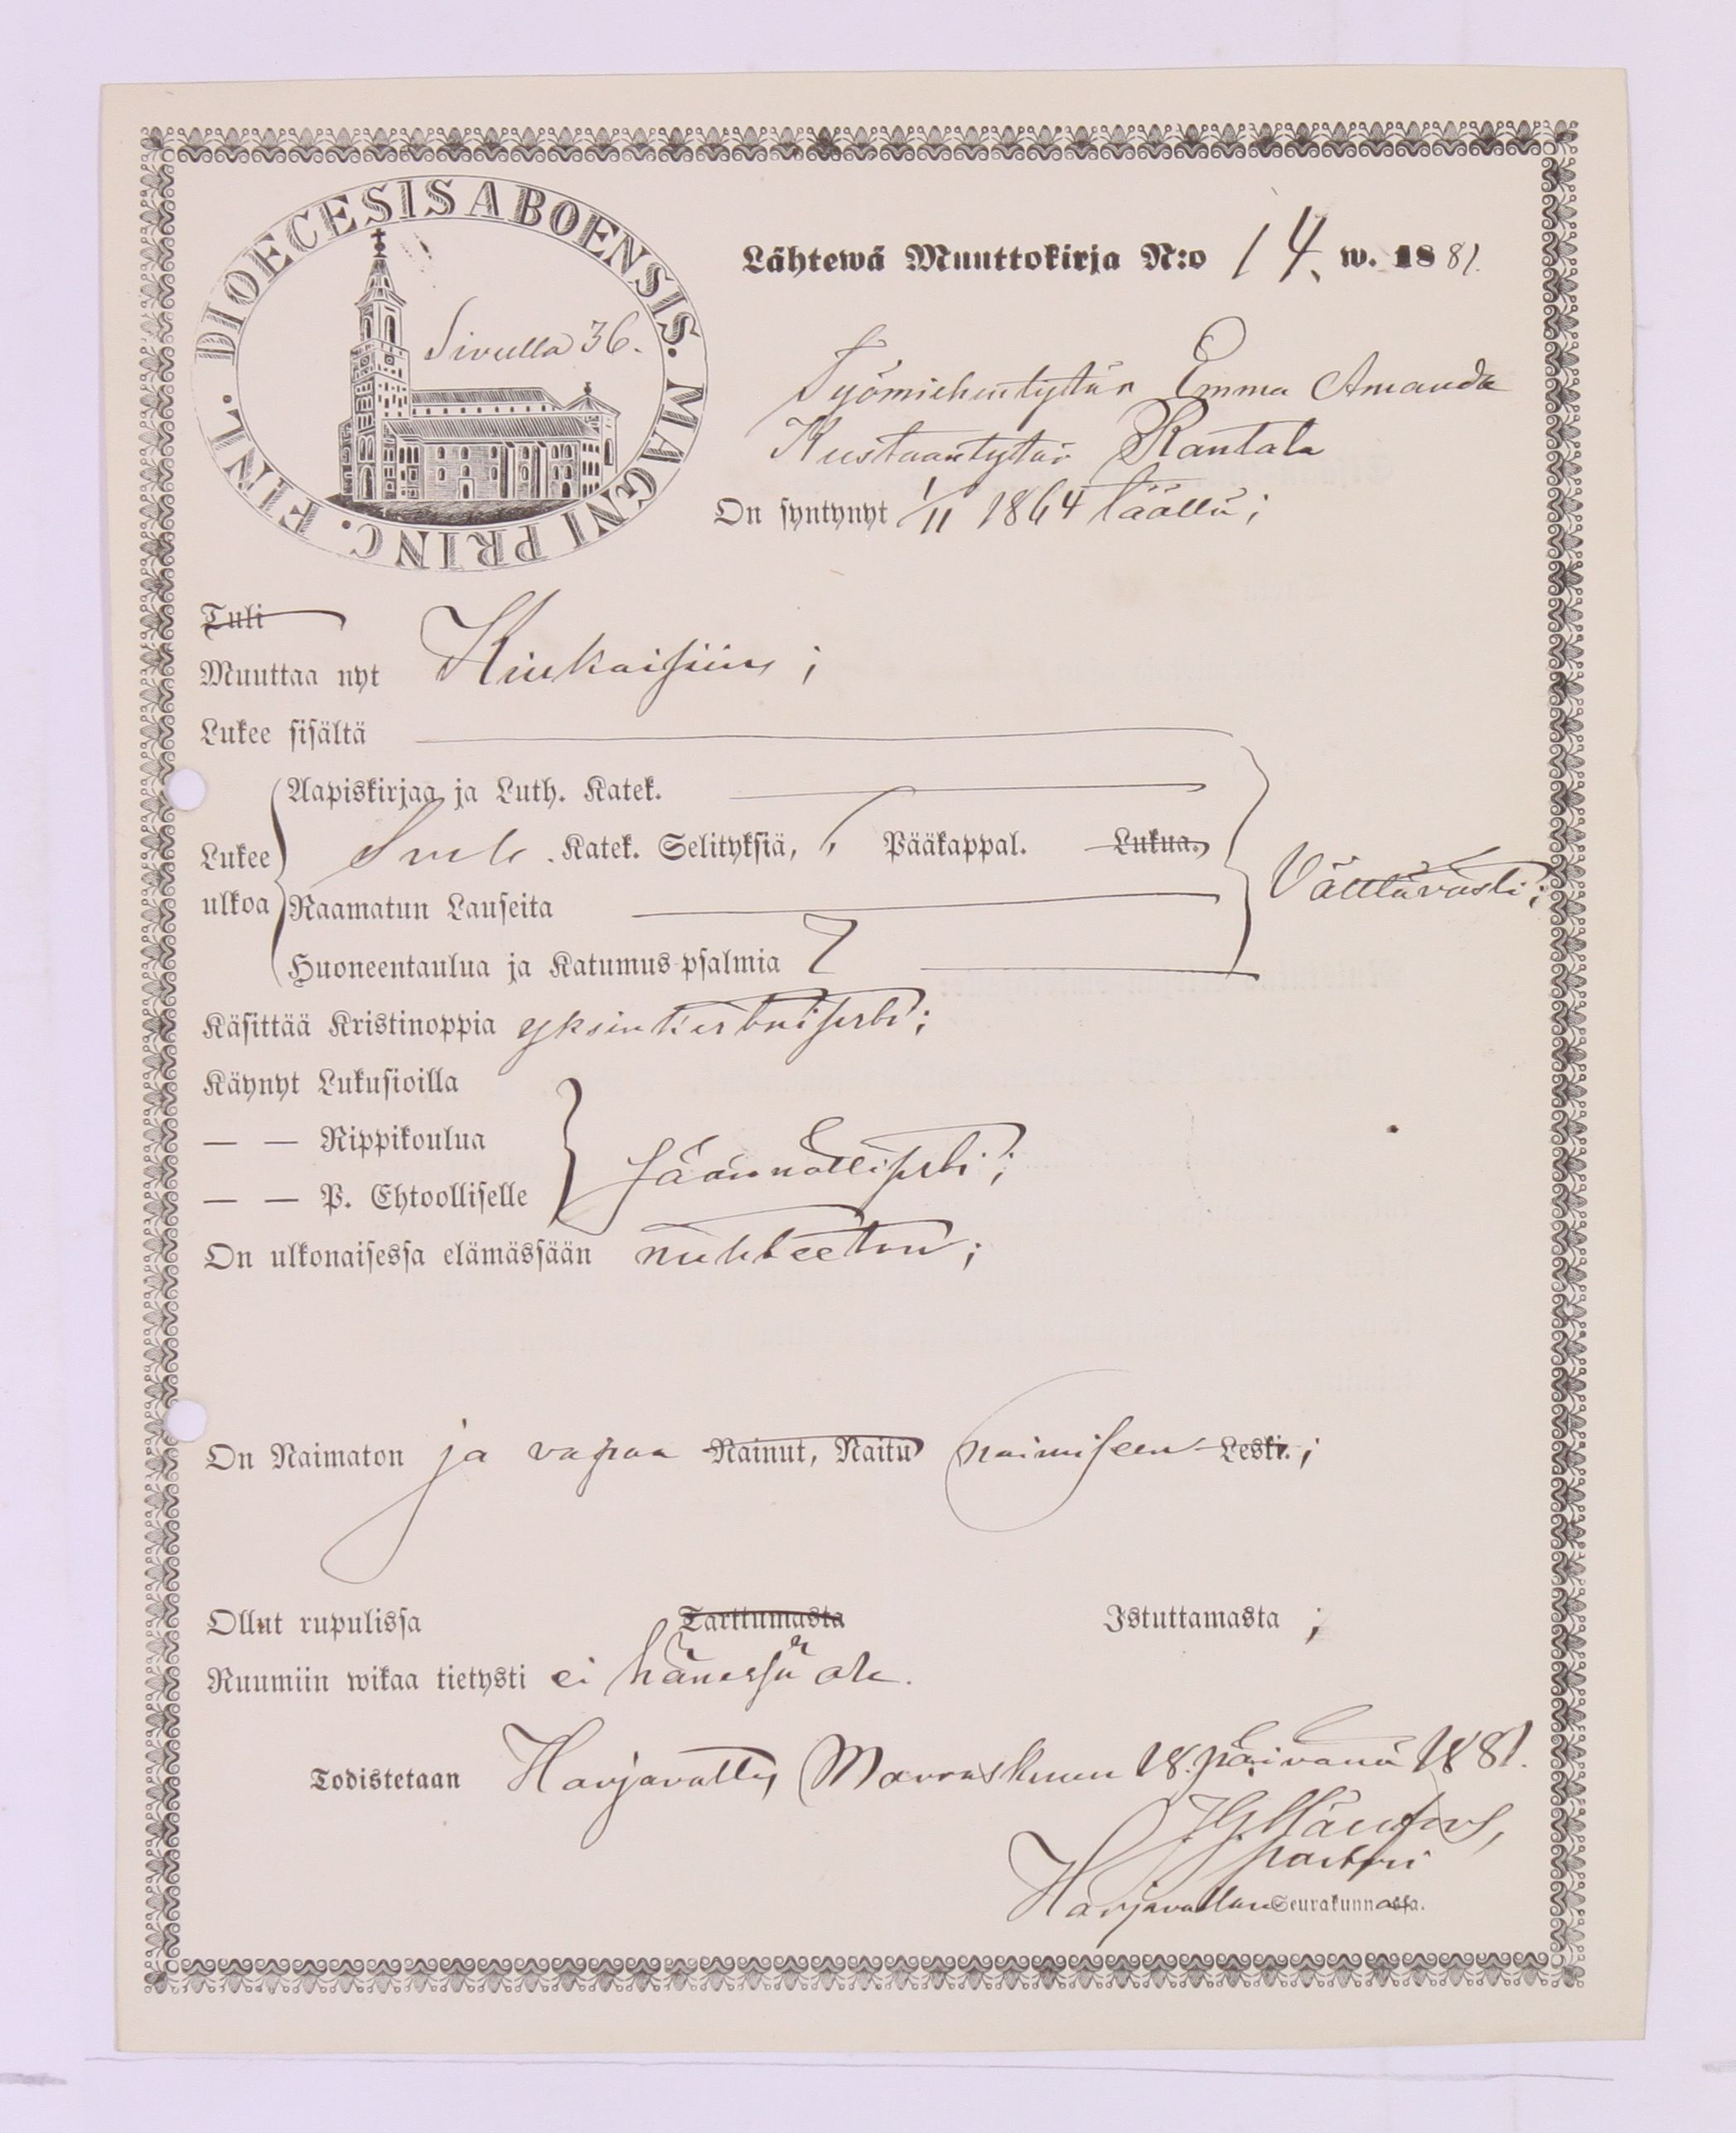 DIOECESIS ABOENSIS. MAGNI PRINC. FINL.
Sivulla 36.
Lähtewä Muuttokirja N:o 14. w. 1881.
Työmiehentytär Emma Amanda
Kustaantytär Rantala
On syntynyt 1/11 1864 täällä;
Tuli
Muuttaa nyt Kiukaisiin;
Lukee sisältä
Aapiskirjaa ja Luth. Katek.
Lukee
ulkoa
Katek. Selityksiä, Pääkappal. Lukua.
Välttävästi;
Raamatun Lauseita
Huoneentaulua ja Katumus-psalmia
Käsittää Kristinoppia yksinkertaisesti;
Käynyt Lukusioilla
— — Rippikoulua
säännöllisesti;
— — P. Ehtoolliselle
On ulkonaisessa elämässään nuhteeton;
On Naimaton ja vapaa Nainut, Naitu naimiseen Leski.;
Ollut rupulissa Tarttumasta Istuttamasta;
Ruumiin wikaa tietysti ei hänessä ole.
Todistetaan Harjavalta, Marraskuun 18. päivänä 1881.
pastori
Harjavallan Seurakunnassa.